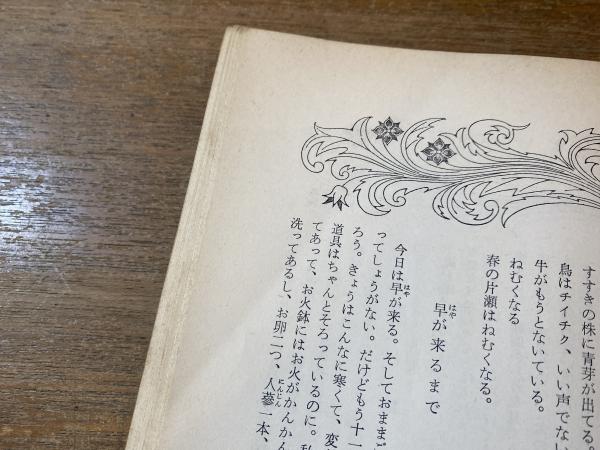 すすきの株に青芽が出てる。
鳥はチイチク、いい声でない
牛がもうとないている。
ねむくなる
春の片瀬はねむくなる。
早が来るまで
はや
今日は早が来る。そしておままご
はや
ってしょうがない。だけどもう十一
ろう。きょうはこんなに寒くて、変
道具はちゃんとそろっているのに。私
てあって、お火鉢にはお火がかんかん
洗ってあるし、お卵二つ、人蔘一本、
にんじん